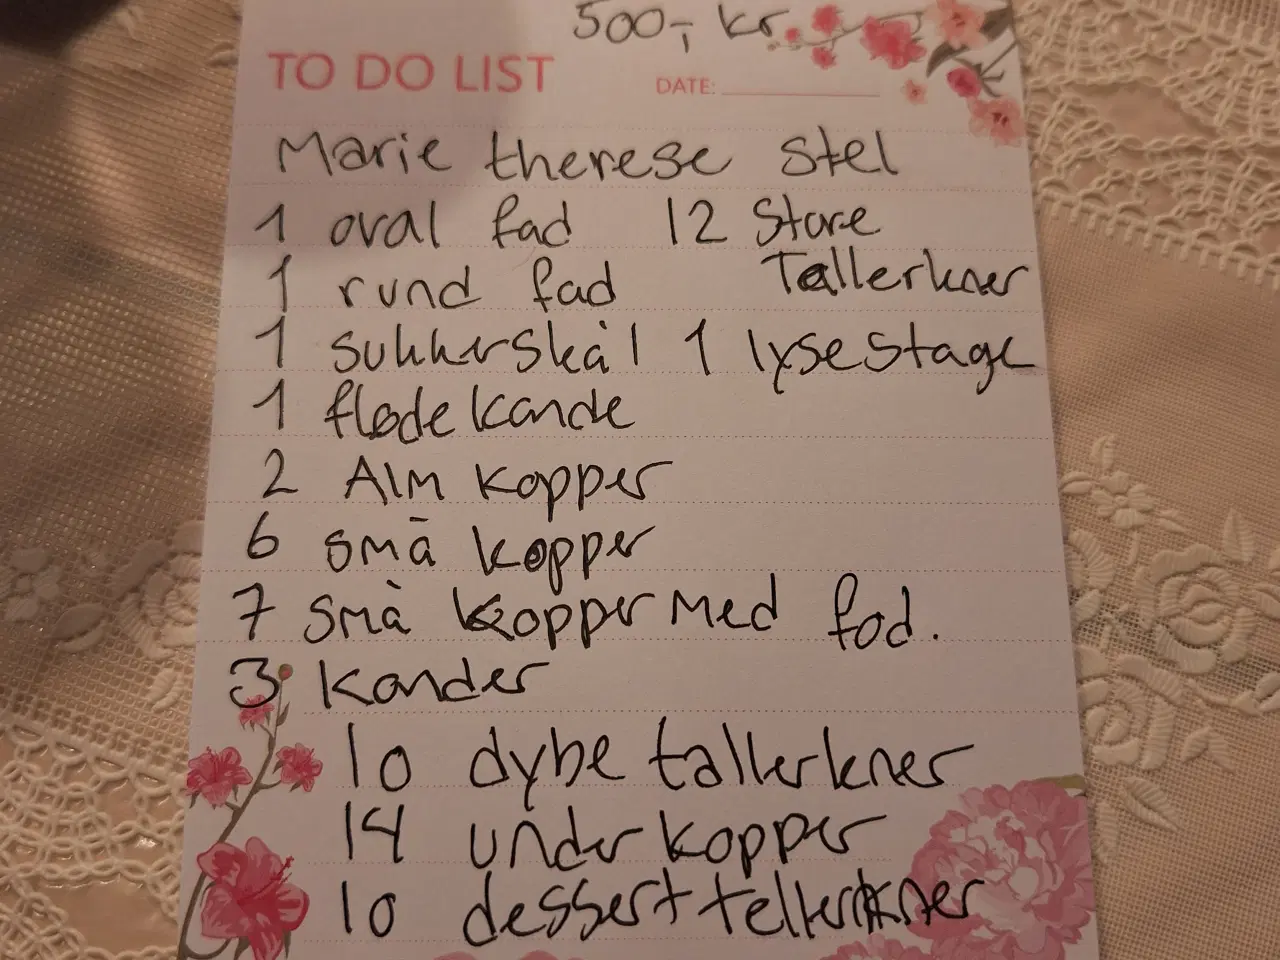 500,- kr.
TO DO LIST DATE:
Marie therese stel
1 oval fad 12 Store
1 rund fad Tallerkner
1 sukkerskål 1 lysestage
1 flødekande
2 Alm kopper
6 små kopper
7 små kopper med fod.
3 Kander
10 dybe tallerkner
14 underkopper
10 desserttellerkner